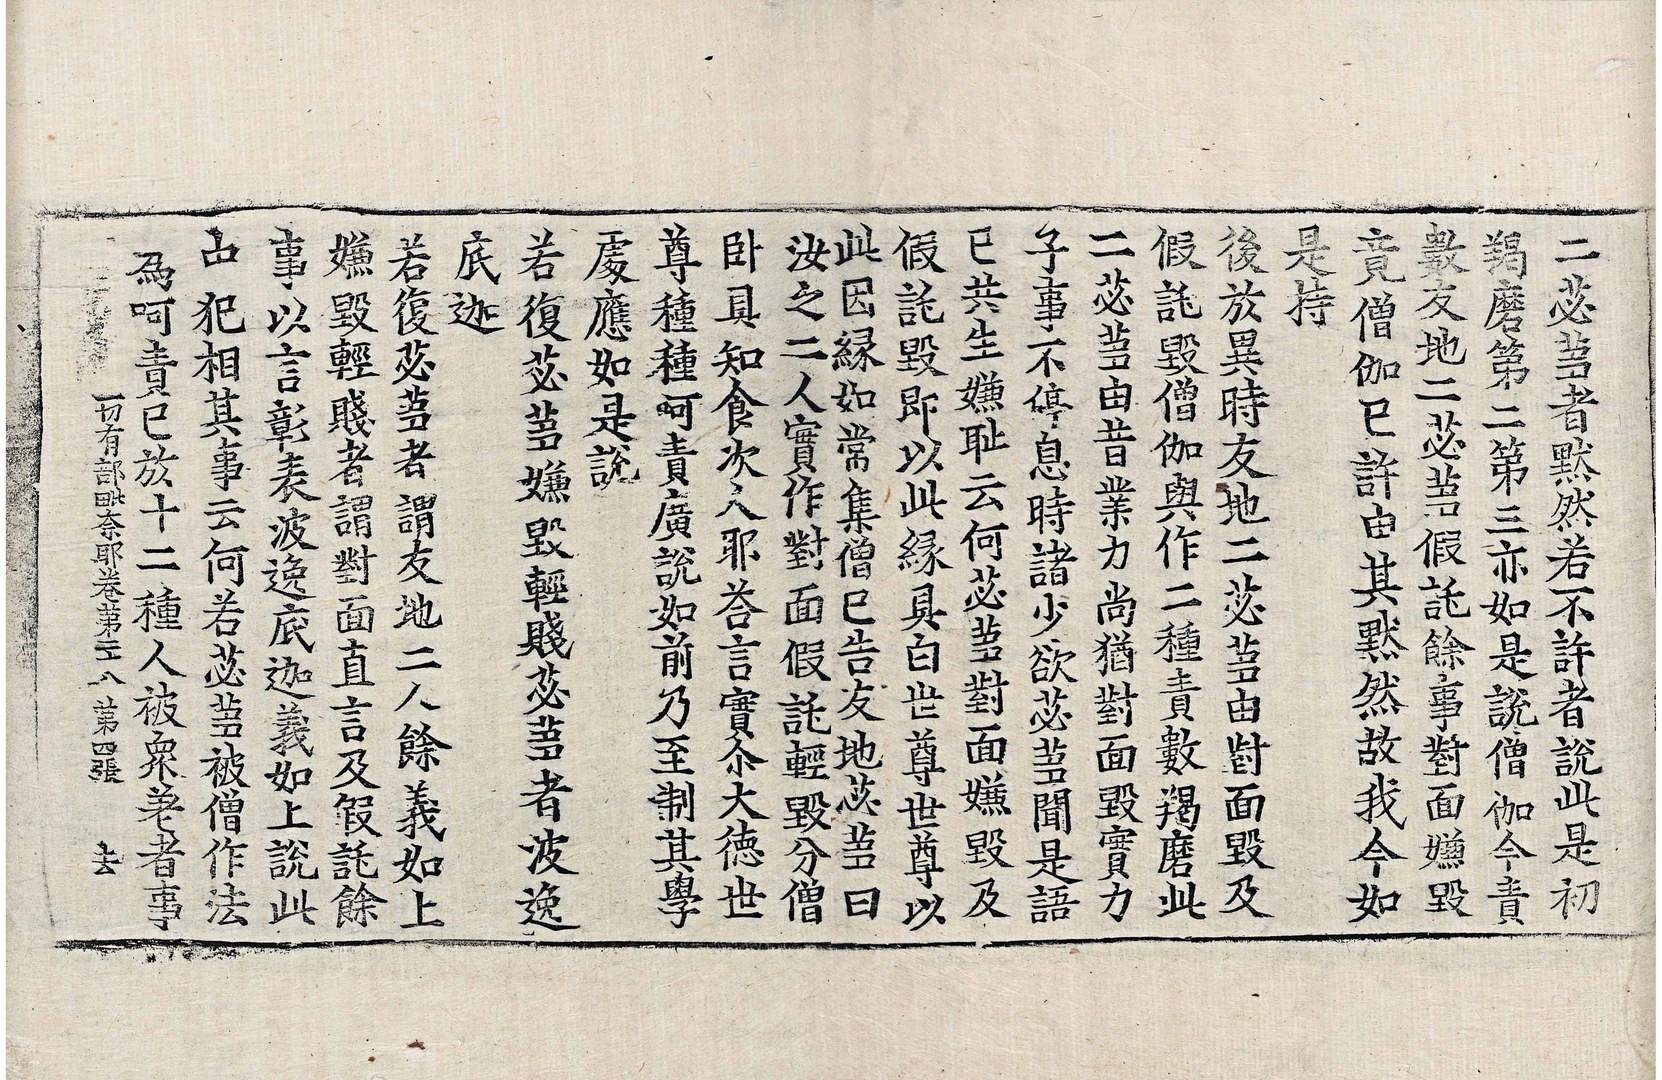 二苾蒭者默然若不許者說此是初
羯磨第二第三亦如是說僧伽今責
數友地二苾蒭假託餘事對面嫌毀
竟僧伽已許由其默然故我今如
是持
後於異時友地二苾蒭由對面毀及
假託毀僧伽與作二種責數羯磨此
二苾蒭由昔業力尚猶對面毀實力
子事不停息時諸少欲苾蒭聞是語
已共生嫌恥云何苾蒭對面嫌毀及
假託毀即以此緣具白世尊世尊以
此因緣如常集僧已告友地苾蒭曰
汝之二人實作對面假託輕毀分僧
卧具知食次人耶荅言實尒大德世
尊種種呵責廣說如前乃至制其學
處應如是說
若復苾蒭嫌毀輕賤苾蒭者波逸
底迦
若復苾蒭者謂友地二人餘義如上
嫌毀輕賤者謂對面直言及假託餘
事以言彰表波逸底迦義如上說此
中犯相其事云何若苾蒭被僧作法
為呵責已於十二種人被眾差者事
一切有部毗奈耶卷第二十八 第四張 去